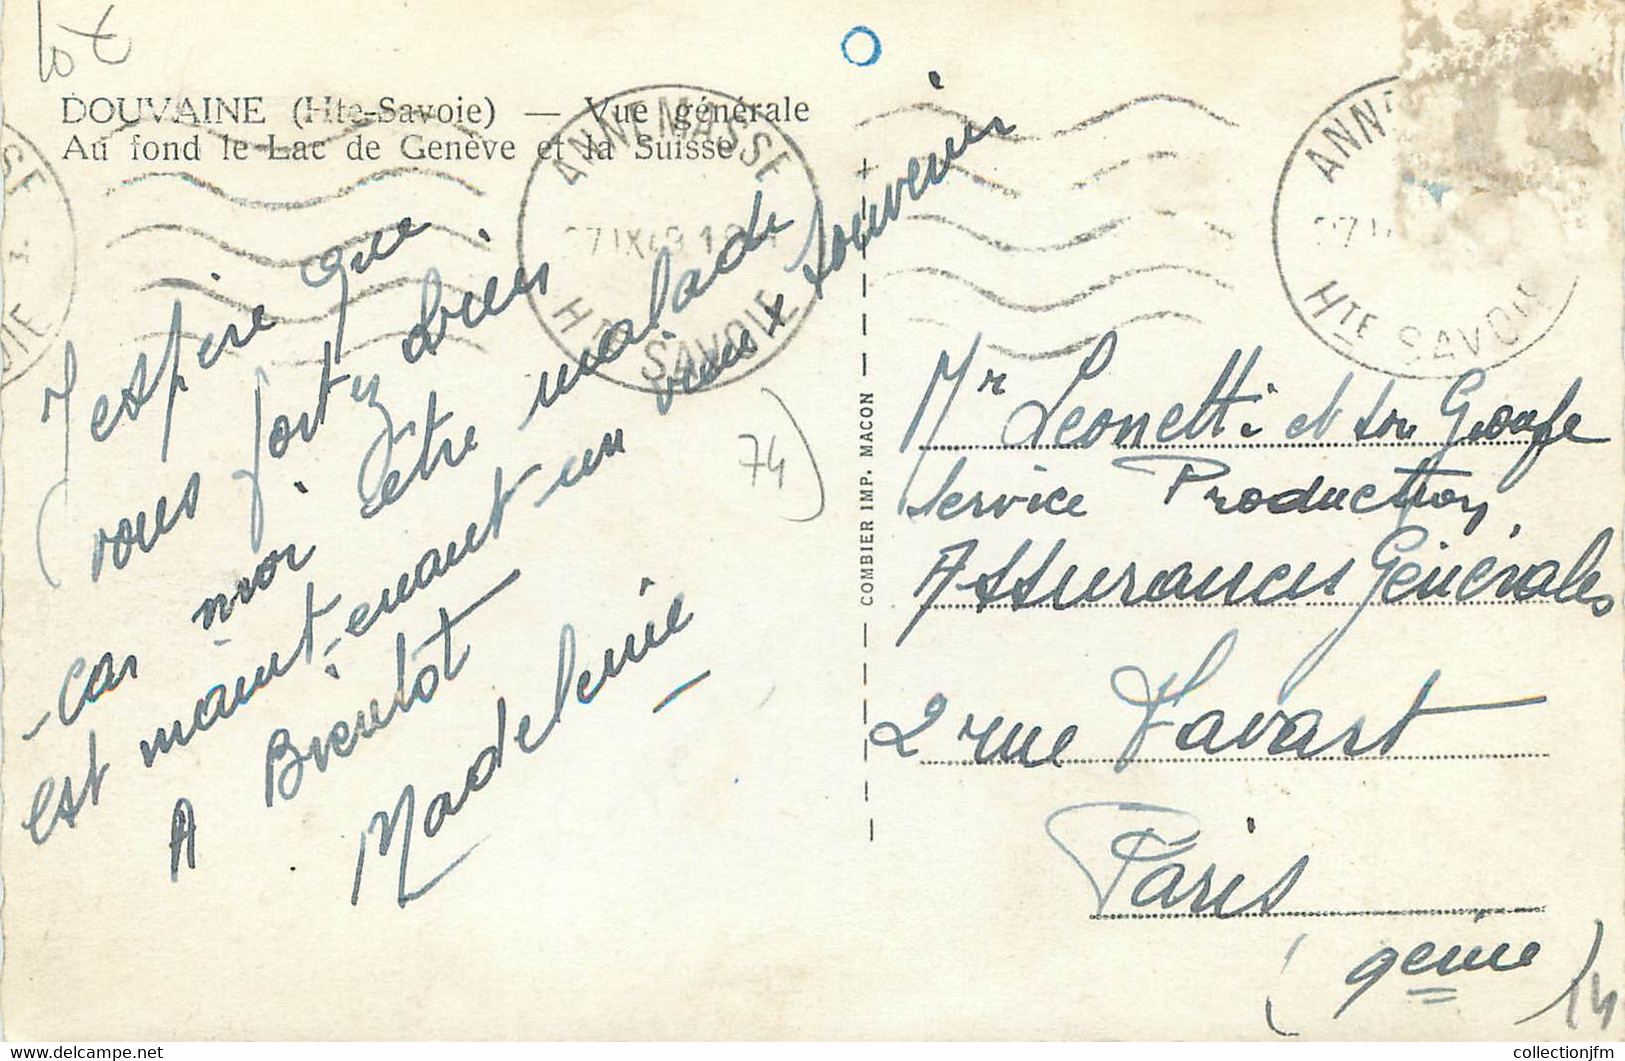 10€
DOUVAINE (Hte-Savoie) — Vue générale
Au fond le Lac de Genève et la Suisse
ANNEMASSE
27 IX
Hte SAVOIE
ANNE
Hte SAVOIE
J'espère que
vous portez bien
car moi être malade
est maintenant un vieux souvenir
A Bientot
Madeleine
74
COMBIER IMP. MACON
Mr Leonetti et son Groupe
Service Production
Assurances Générales
2 rue Favart
Paris
(9eme)
14
collectionjfm